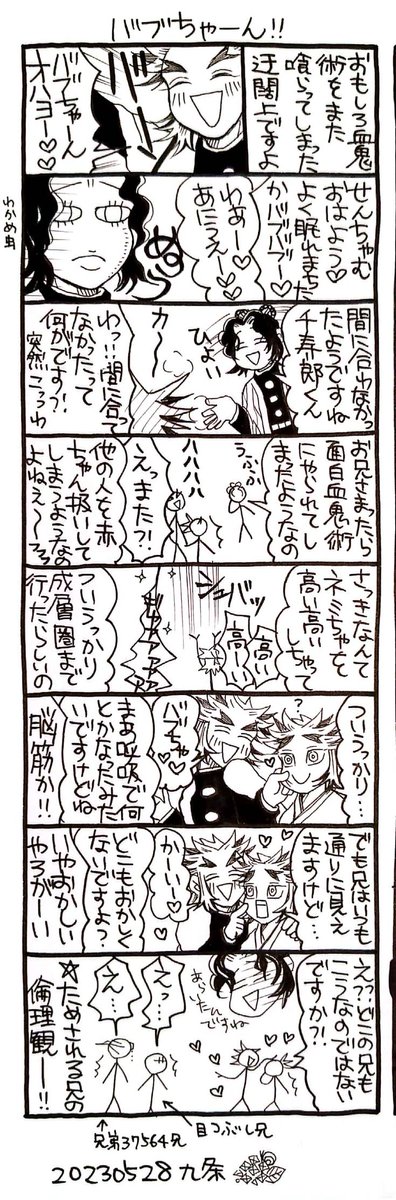 バブちゃーん!!
おもしろ血鬼
術をまた
喰らってしまった
迂闊上ですよ
バブちゃーん
オハヨー♡♡
せんちゃむ
おはよう♡
よく眠れまちた
かバブブー♡
わあー♡
あにうえー♡
ぬっ
わかめ虫
間に合わなかっ
たようですね
千寿郎くん
ひょい
カー
わっ!!間に合って
なかったって
何がです?!
突然こっっわ
お兄さまったら
面白血鬼術
にやられてし
まったようなの
うふふ
ハハハハ
えっまた?!
他の人を赤
ちゃん扱いして
しまうようなの
よねえ〜
さっきなんて
ネミちゃを
高い高い
しちゃって
シュバッ
高い
高ーい
ギャアアアアア
ついうっかり
成層圏まで
行ったらしいの
ついうっかり…
?
バブちゃ
まあ呼吸で何
とかなったみた
いですけどね
脳筋か!!
でも兄はいつも
通りに見え
ますけど…
かーいー♡
どこもおかしく
ないですよ?
いやおかしい
やろがーい
え??どこの兄も
こうなのではない
ですか?!
あらたんですね
えっ…
え…
☆ためされる兄の
倫理観ー!!
目つぶし兄
兄弟37564兄
20230528 九条